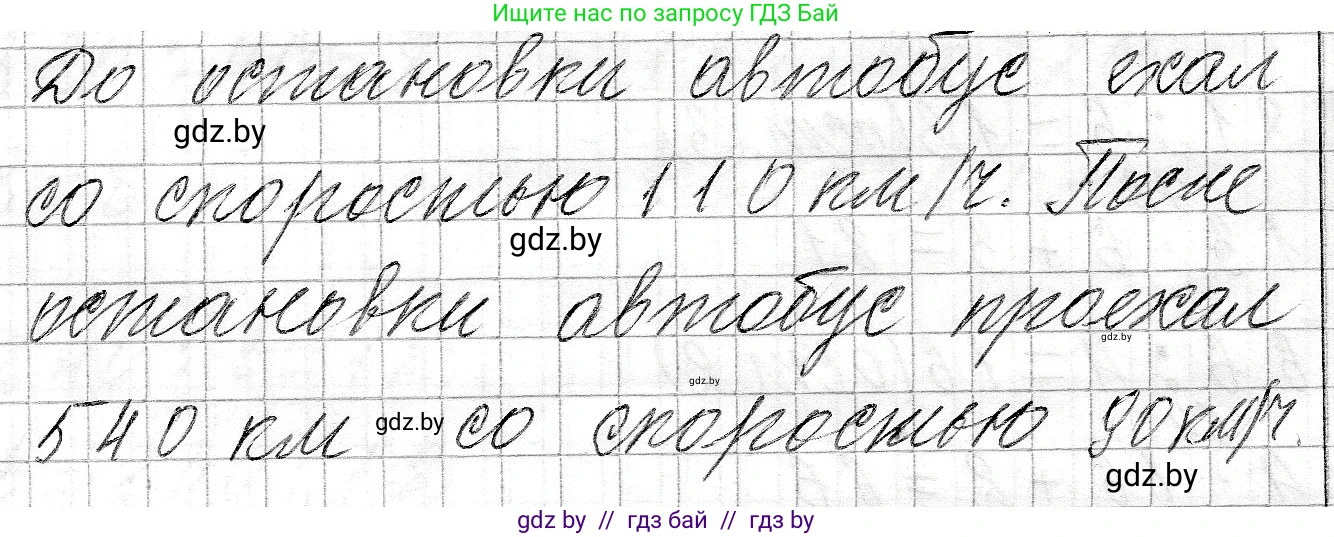 Ищите нас по запросу ГДЗ Бай
До остановки автобус ехал
gdz.by
со скоростью 110 км/ч. После
gdz.by
остановки автобус проехал
gdz.by
gdz.by
540 км gdz.by со скоростью 90 км/ч.
gdz.by
gdz by // гдз бай // гдз by